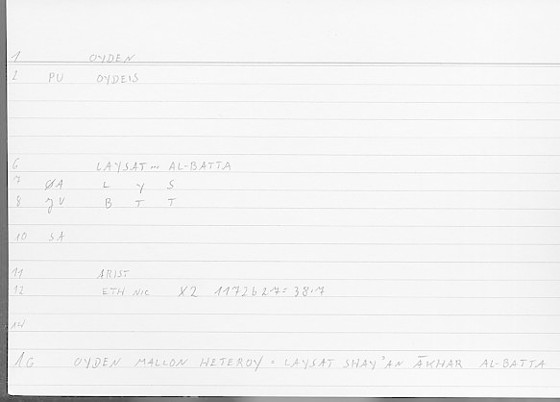 1 OYDEN
2 PU OYDEIS
6 LAYSAT AL-BATTA
7 ØA L Y S
8 JU B T T
10 SA
11 ARIST
12 ETH NIC X2 1172b27=38.7
14
16 OYDEN MALLON HETEROY = LAYSAT SHAY'AN ĀKHAR AL-BATTA